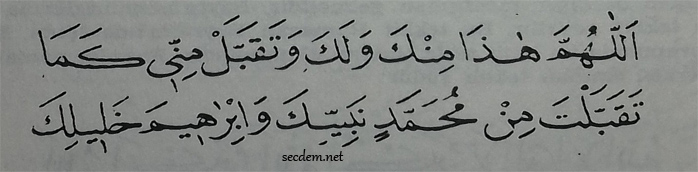 اَللّٰهُمَّ هٰذَا مِنْكَ وَلَكَ وَتَقَبَّلْ مِنِّي كَمَا
تَقَبَّلْتَ مِنْ مُحَمَّدٍ نَبِيِّكَ وَاِبْرٰهِيمَ خَلِيلِكَ
secdem.net